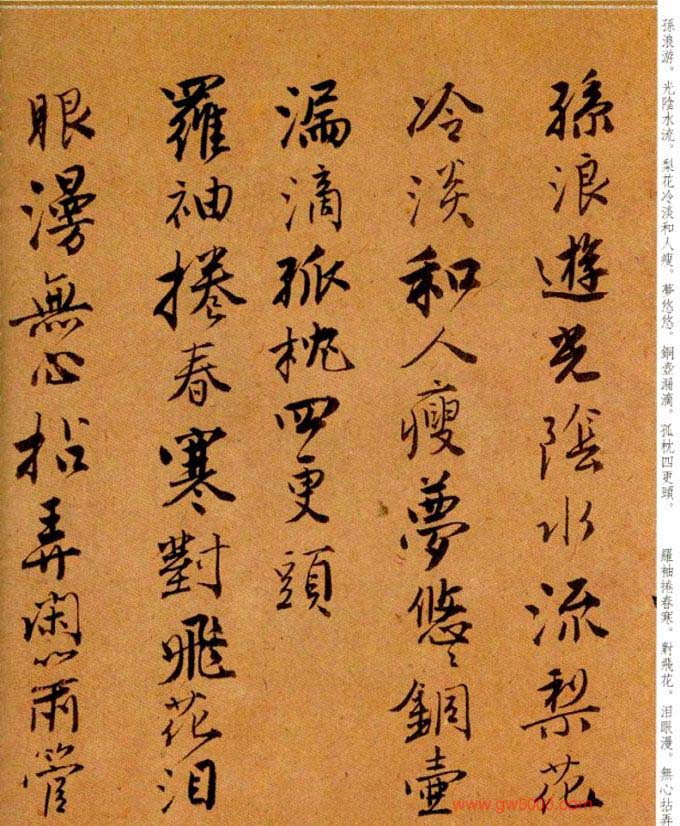 孫浪游。光陰水流。梨花冷淡和人瘦。夢悠悠。銅壺漏滴。孤枕四更頭。 羅袖捲春寒。對飛花。泪眼漫。無心拈弄
孫浪遊光陰水流梨花
冷淡和人瘦夢悠〻銅壺
漏滴孤枕四更頭
羅袖捲春寒對飛花泪
眼漫無心拈弄閑管